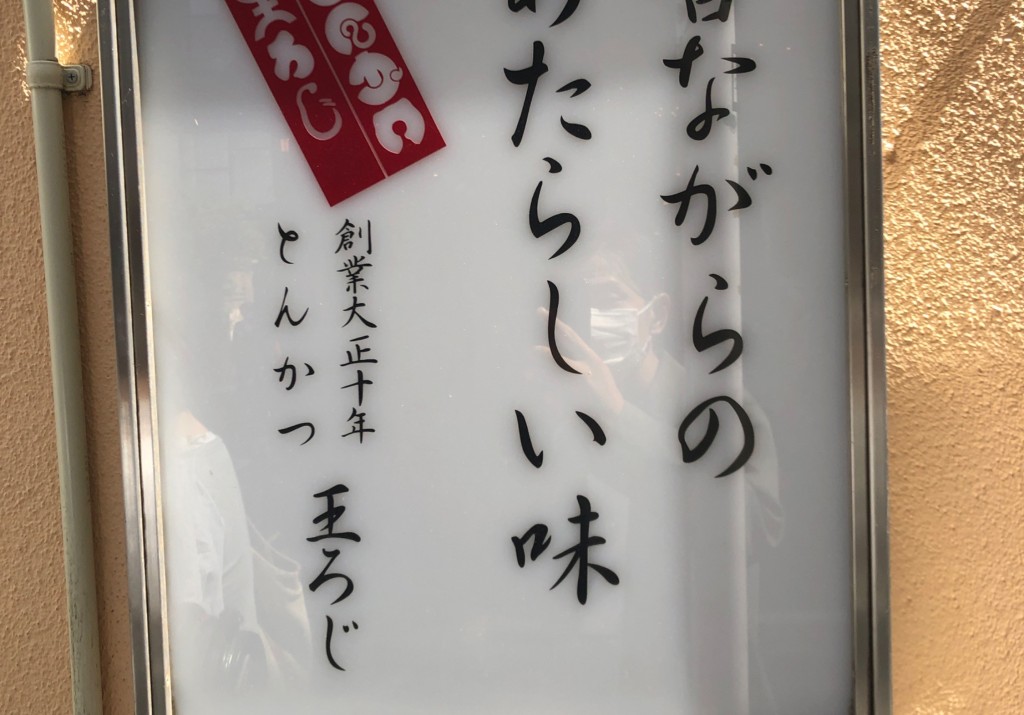 昔ながらの
あたらしい味
とんかつ
王ろじ
創業大正十年
とんかつ
王ろじ